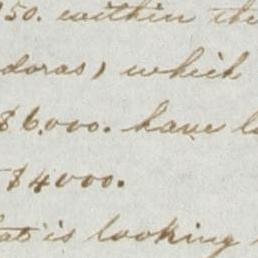 150. within the
doras) which
$6.000. have
$4000.
is looking